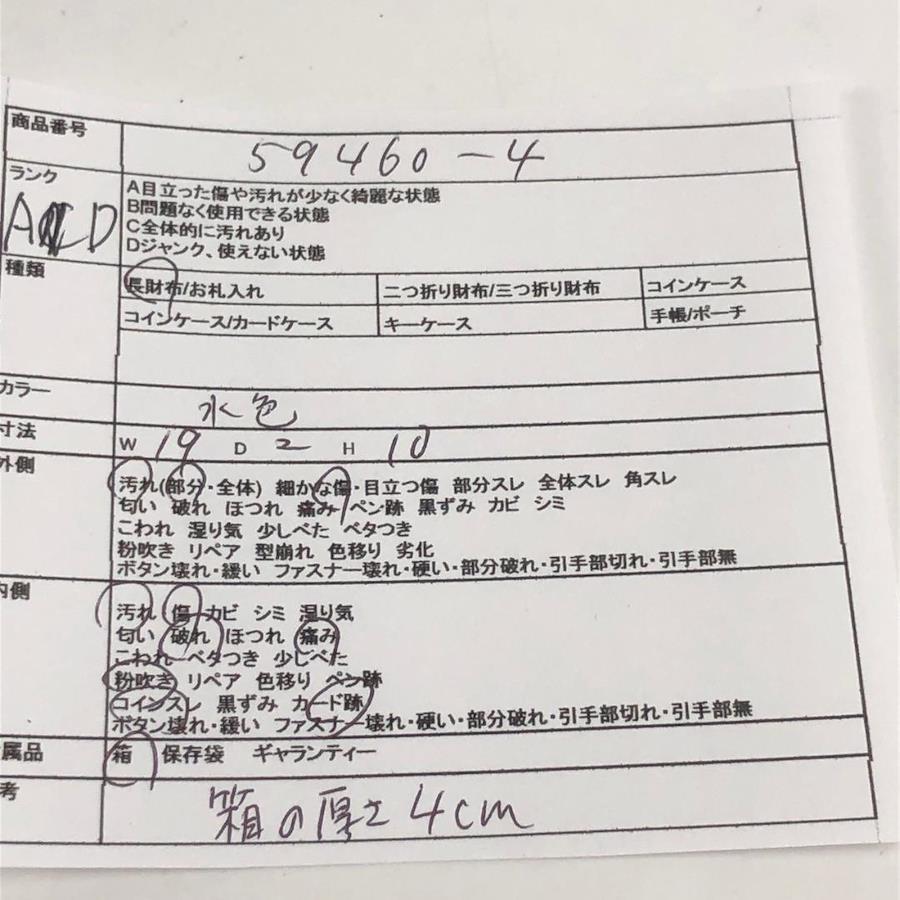 商品番号
59460-4
ランク
A目立った傷や汚れが少なく綺麗な状態
B問題なく使用できる状態
C全体的に汚れあり
Dジャンク、使えない状態
種類
長財布/お札入れ 二つ折り財布/三つ折り財布 コインケース
コインケース/カードケース キーケース 手帳/ポーチ
カラー
水色
寸法
W 19 D 2 H 10
外側
汚れ(部分・全体) 細かな傷・目立つ傷 部分スレ 全体スレ 角スレ
匂い 破れ ほつれ 痛み ペン跡 黒ずみ カビ シミ
こわれ 湿り気 少しべた ベタつき
粉吹き リペア 型崩れ 色移り 劣化
ボタン壊れ・緩い ファスナー壊れ・硬い・部分破れ・引手部切れ・引手部無
内側
汚れ 傷 カビ シミ 湿り気
匂い 破れ ほつれ 痛み
こわれ ベタつき 少しべた
粉吹き リペア 色移り ペン跡
コインスレ 黒ずみ カード跡
ボタン壊れ・緩い ファスナー壊れ・硬い・部分破れ・引手部切れ・引手部無
属品
箱 保存袋 ギャランティー
考
箱の厚さ4cm